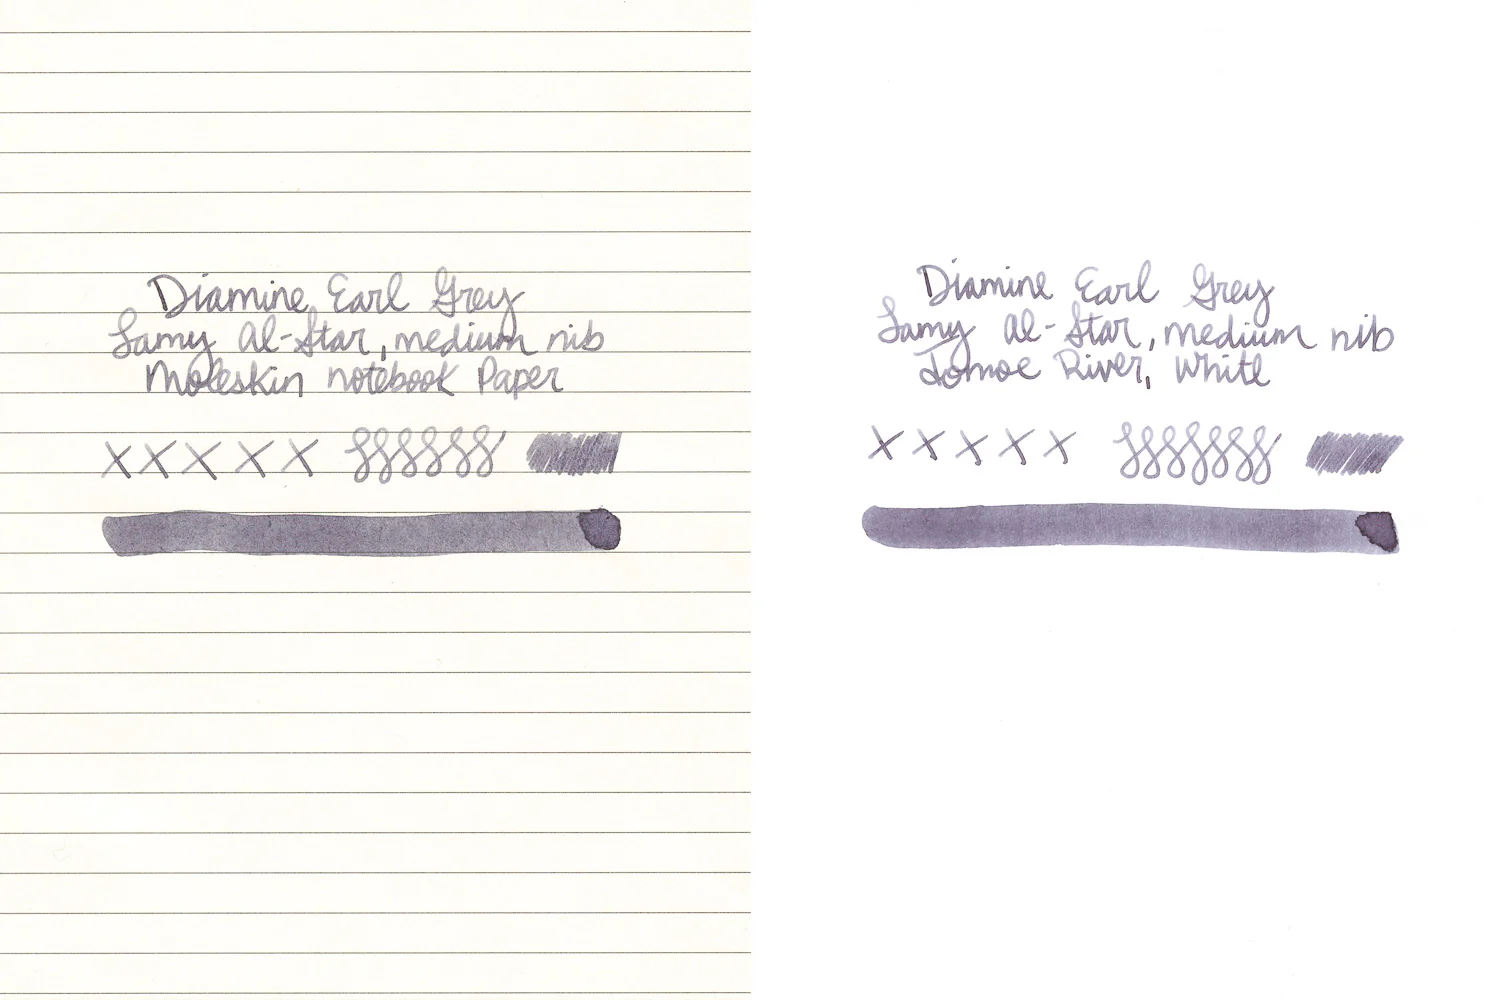 Diamine Earl Grey
Lamy Al-Star, medium nib
Moleskin notebook Paper
X X X X X
Diamine Earl Grey
Lamy Al-Star, medium nib
Tomoe River, White
X X X X X